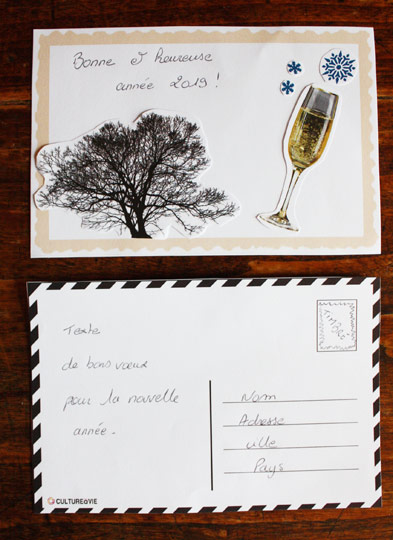 Bonne & heureuse
année 2019 !
Texte
de bons vœux
pour la nouvelle
année.
TIMBRE
Nom
Adresse
ville
Pays
CULTUREàVIE